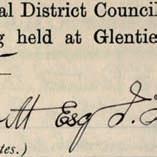 al District Council
g held at Glentie
itt Esq J.
tes.)